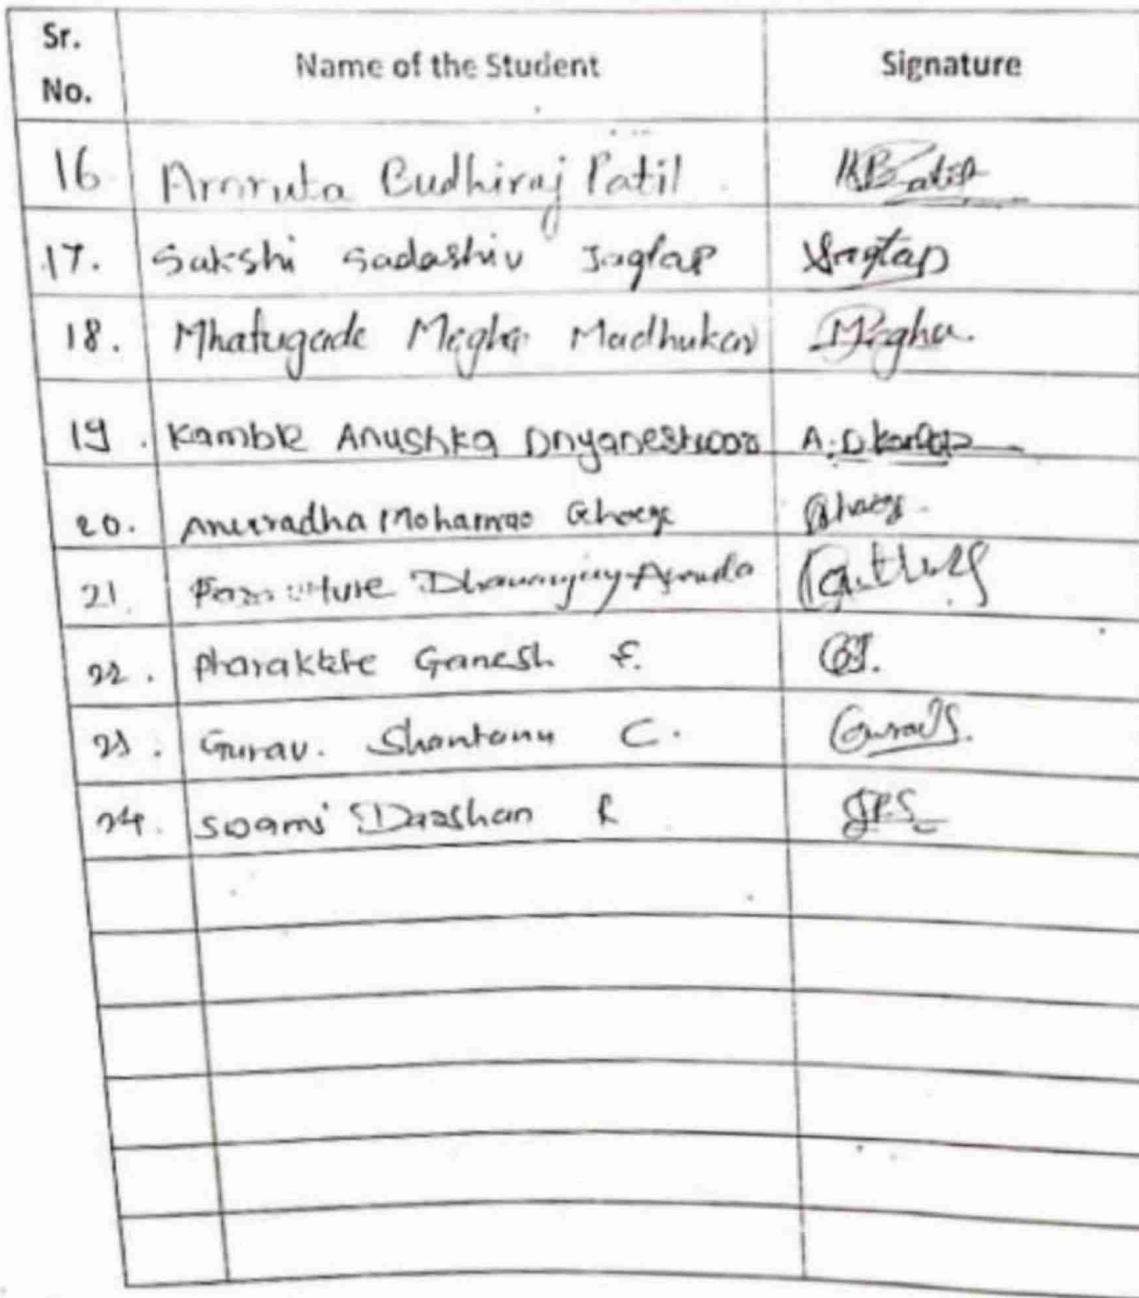 Sr. No. Name of the Student Signature
16 Amruta Budhiraj Patil ABPatil
17. Sakshi Sadashiv Jagtap SJagtap
18. Mhatugade Megha Madhukar Megha.
19. Kamble Anushka Dnyaneshwar A.D.Kamble
20. Anuradha Mohanrao Ghorge
21.
22. Pharakate Ganesh
23. Gurav. Shantanu C. GuravS.
24. Swami Darshan R